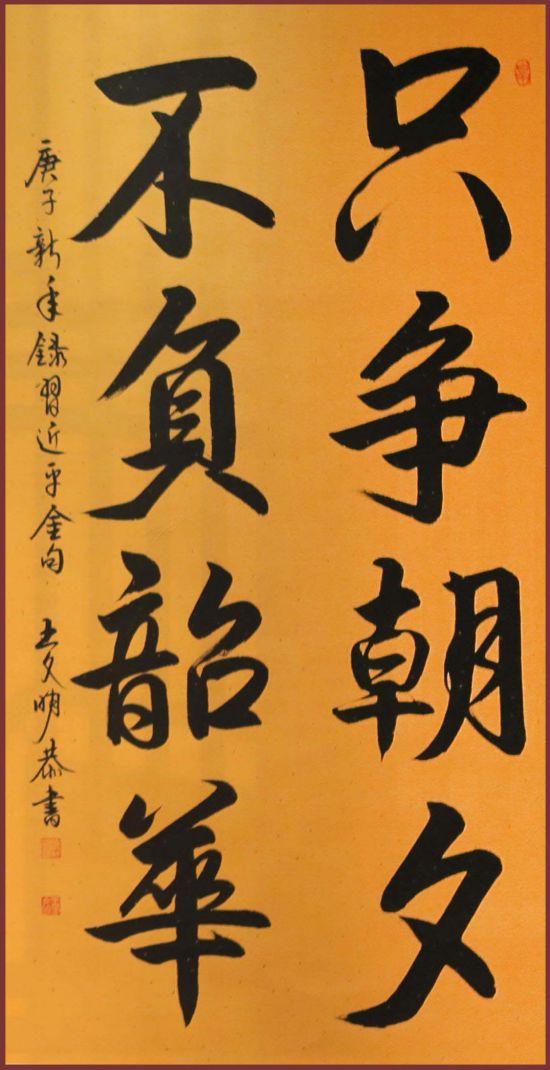 只争朝夕
不負韶華
庚子新年錄習近平金句 王文明恭書